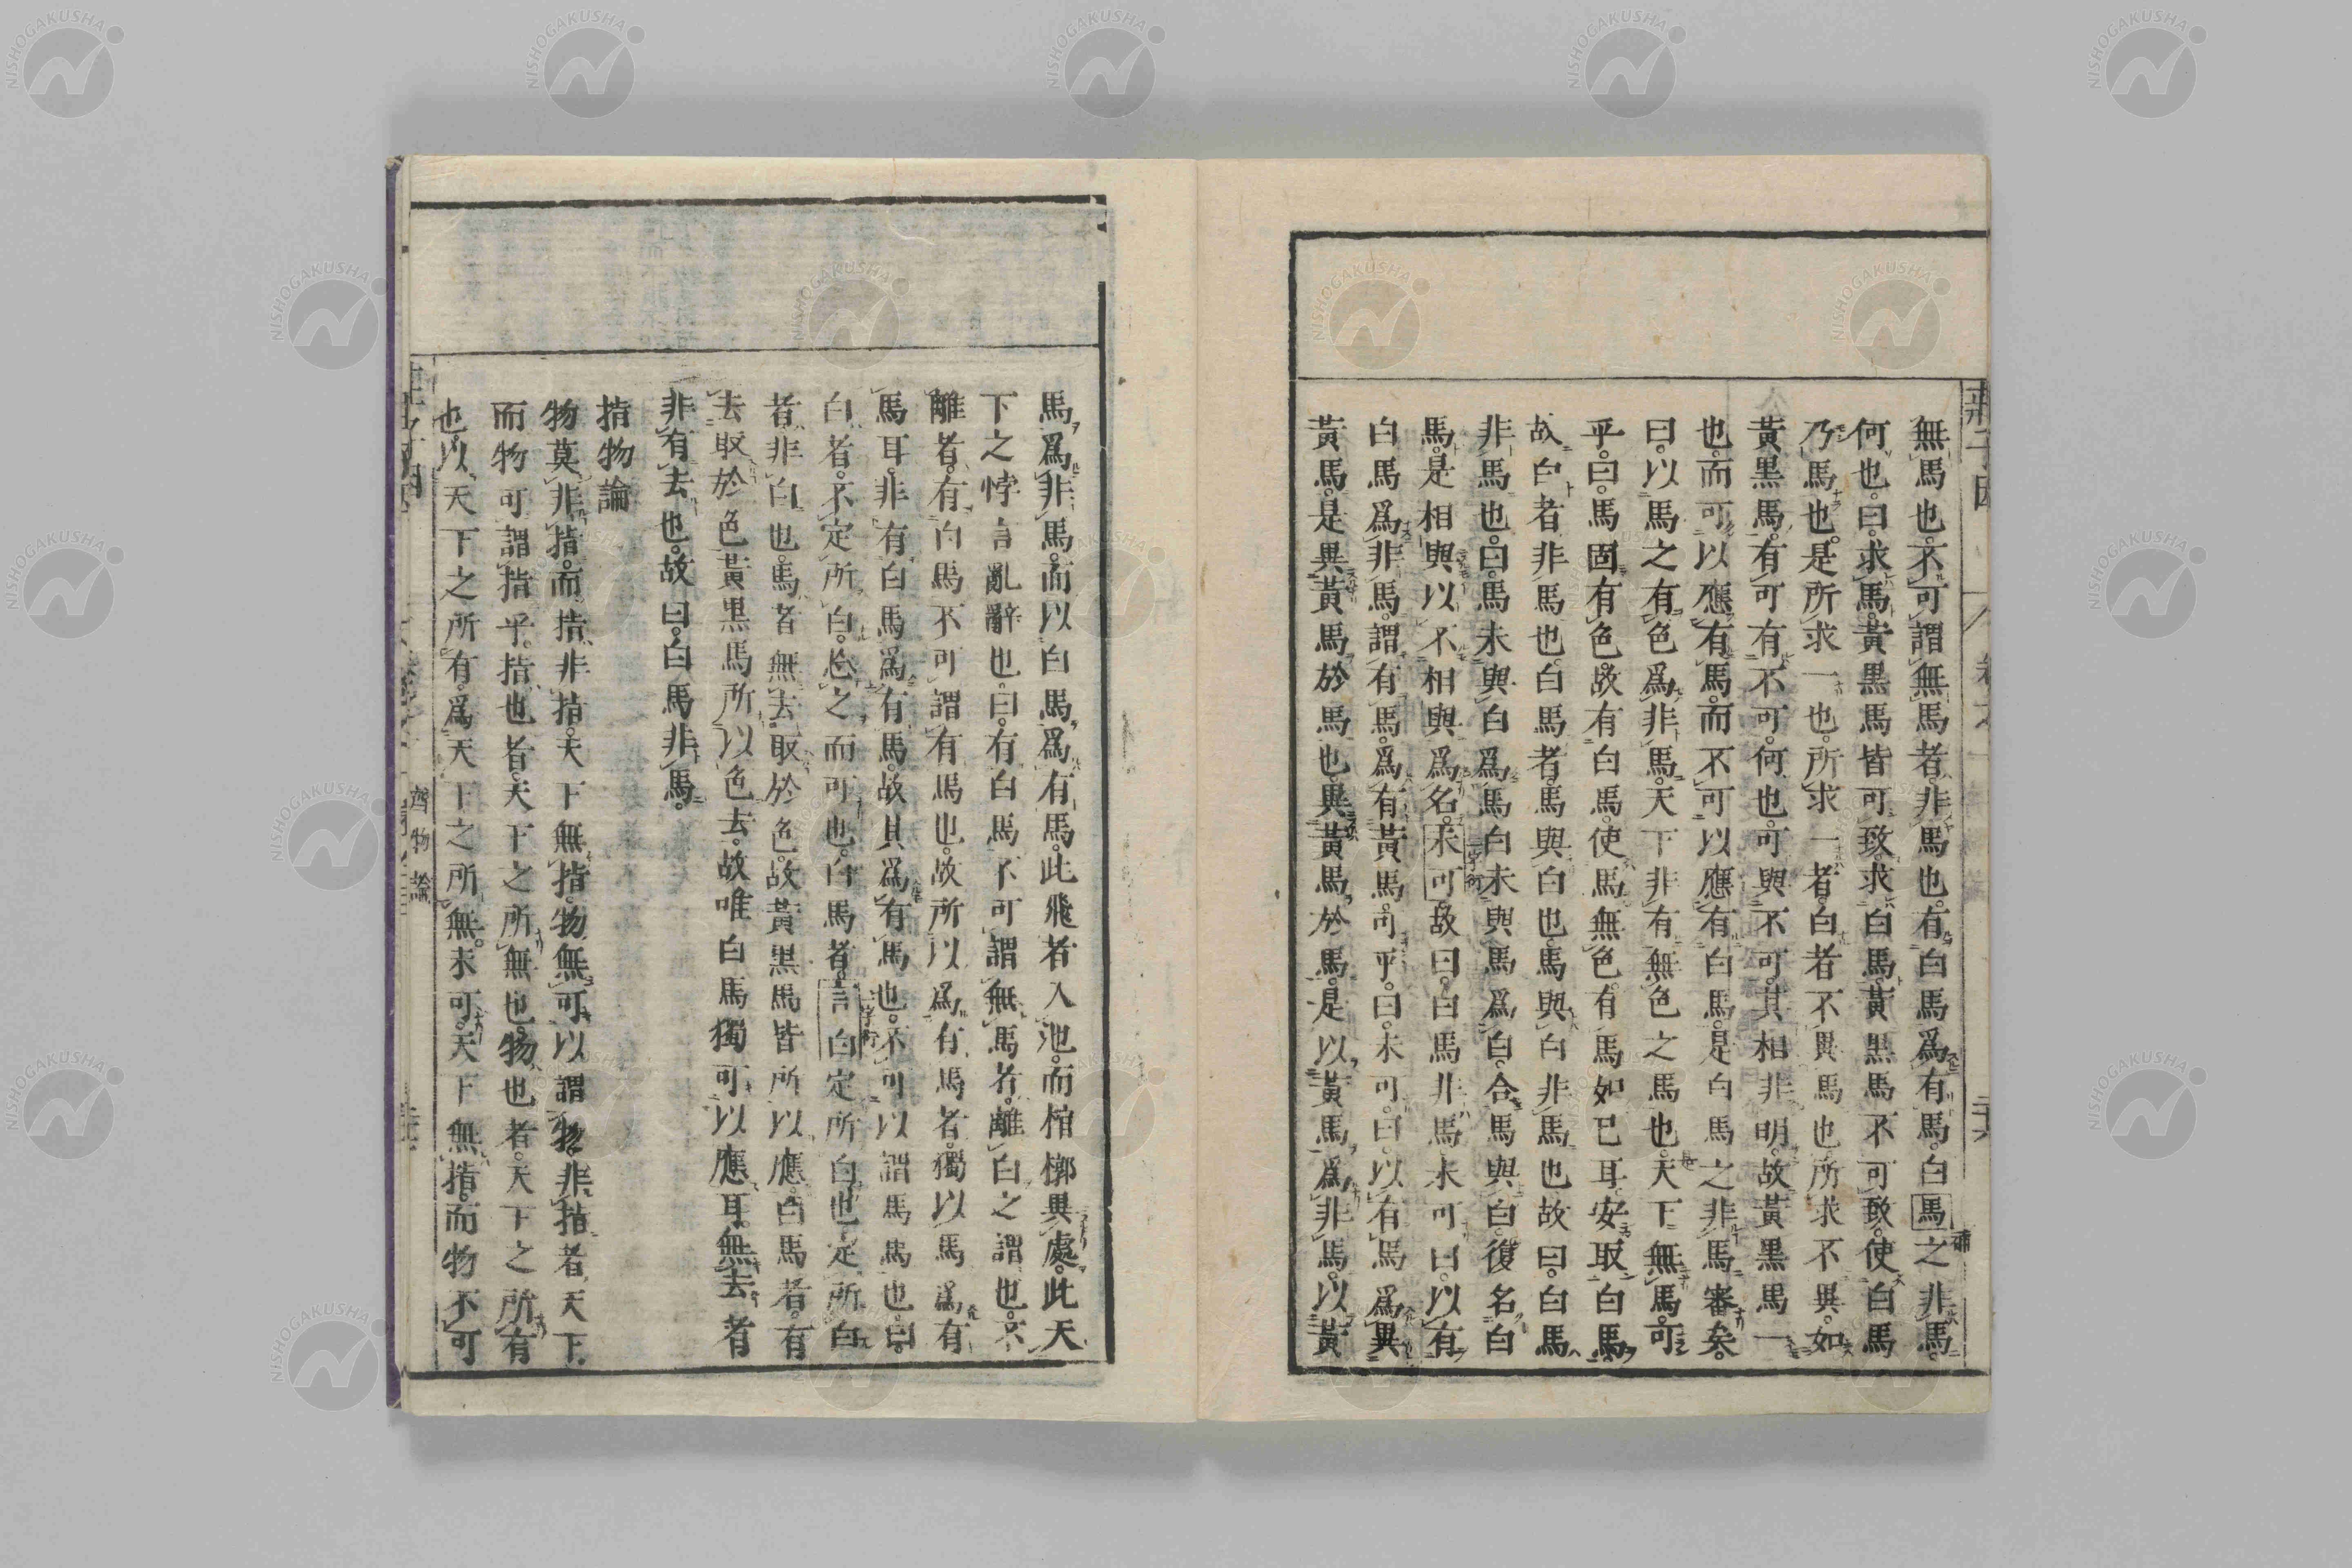 無馬也。不可謂無馬者。非馬也。有白馬爲有馬。白馬之非馬。
何也。曰。求馬。黃黒馬皆可致。求白馬。黃黒馬不可致。使白馬
乃馬也。是所求一也。所求一者。白者不異馬也。所求不異。如
黃黒馬。有可有不可。何也。可與不可。其相非明。故黃黒馬一
也。而可以應有馬。而不可以應有白馬。是白馬之非馬審矣。
曰。以馬之有色爲非馬。天下非有無色之馬也。天下無馬。可
乎。曰。馬固有色。故有白馬。使馬無色。有馬如已耳。安取白馬
故白者非馬也。白馬者。馬與白也。馬與白非馬也故曰。白馬
非馬也。曰。馬未與白爲馬白未與馬爲白。合馬與白。復名白
馬。是相與以不相與爲名。未可。故曰。白馬非馬。未可。曰。以有
白馬爲非馬。謂有馬。爲有黃馬。可乎。曰。未可。曰。以有馬爲異
黃馬。是異黃馬於馬也。異黃馬。於馬。是以黃馬。爲非馬。以黃
馬爲非馬。而以白馬爲有馬。此飛者入池。而棺槨異處。此天
下之悖言亂辭也。曰。有白馬不可謂無馬者。離白之謂也。不
離者。有白馬不可謂有馬也。故所以爲有馬者。獨以馬爲有
馬耳。非有白馬爲有馬。故其爲有馬也。不可以謂馬馬也。曰。
白者。不定所白。忘之而可也。白馬者。言白定所白也。定所白
者。非白也。馬者無去取於色。故黃黒馬皆所以應。白馬者。有
去取於色黃黒馬所以色去。故唯白馬獨可以應耳。無去者
非有去也。故曰。白馬非馬。
指物論
物莫非指。而指非指。天下無指。物無可以謂物。非指者天下
而物可謂指乎。指也者。天下之所無也。物也者。天下之所有
也。以天下之所有。爲天下之所無。未可。天下無指。而物不可
齊物論